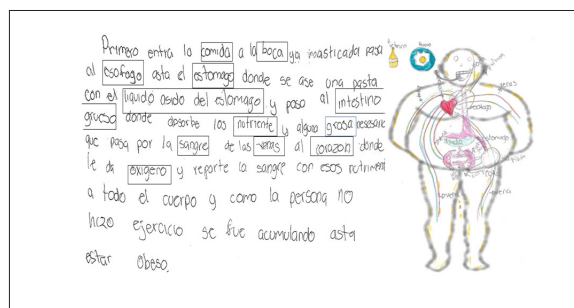 Primero entra la comida a la boca ya masticada pasa
al esofago asta el estomago donde se ase una pasta
con el liquido asido del estomago y pasa al intestino
grueso donde absorbe los nutriente y alguna grasa nesesaria
que pasa por la sangre de las venas al corazon donde
le da oxigeno y reporte la sangre con esos nutriment
a todo el cuerpo y como la persona no
hizo ejercicio se fue acumulando asta
estar obeso.
huevo
boca
venas
esofago
estomago
vena